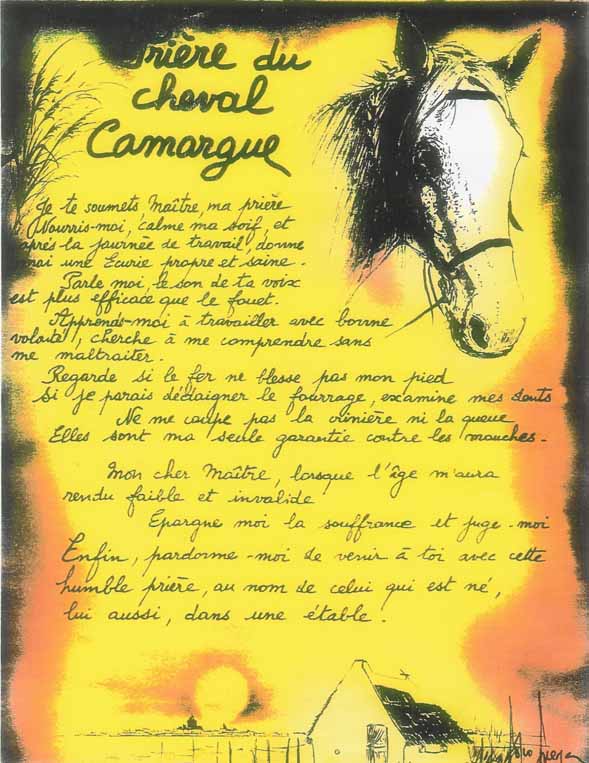 Prière du
cheval
Camargue
Je te soumets Maître, ma prière
Nourris-moi, calme ma soif, et
après la journée de travail, donne
moi une Ecurie propre et saine.
Parle moi, le son de ta voix
est plus efficace que le fouet.
Apprends-moi à travailler avec bonne
volonté, cherche à me comprendre sans
me maltraiter.
Regarde si le fer ne blesse pas mon pied
Si je parais dédaigner le fourrage, examine mes dents
Ne me coupe pas la crinière ni la queue
Elles sont ma seule garantie contre les mouches.
Mon cher Maître, lorsque l'âge m'aura
rendu faible et invalide
Epargne moi la souffrance et juge-moi
Enfin, pardonne-moi de venir à toi avec cette
humble prière, au nom de celui qui est né,
lui aussi, dans une étable.